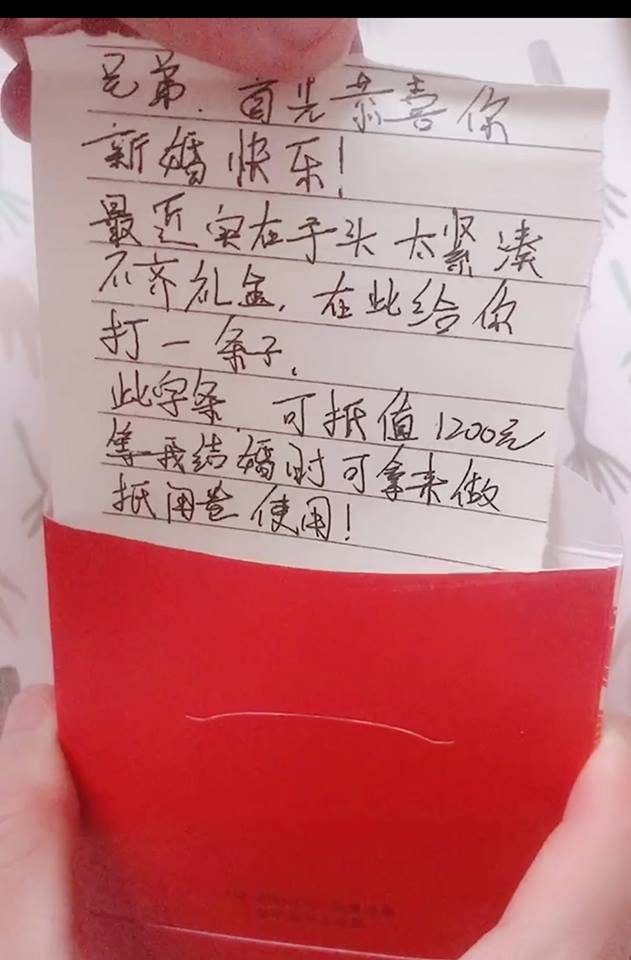 兄弟.首先恭喜你
新婚快乐!
最近实在手头太紧凑
不齐礼金,在此给你
打一条子.
此字条.可抵值1200元
等我结婚时可拿来做
抵用卷使用!